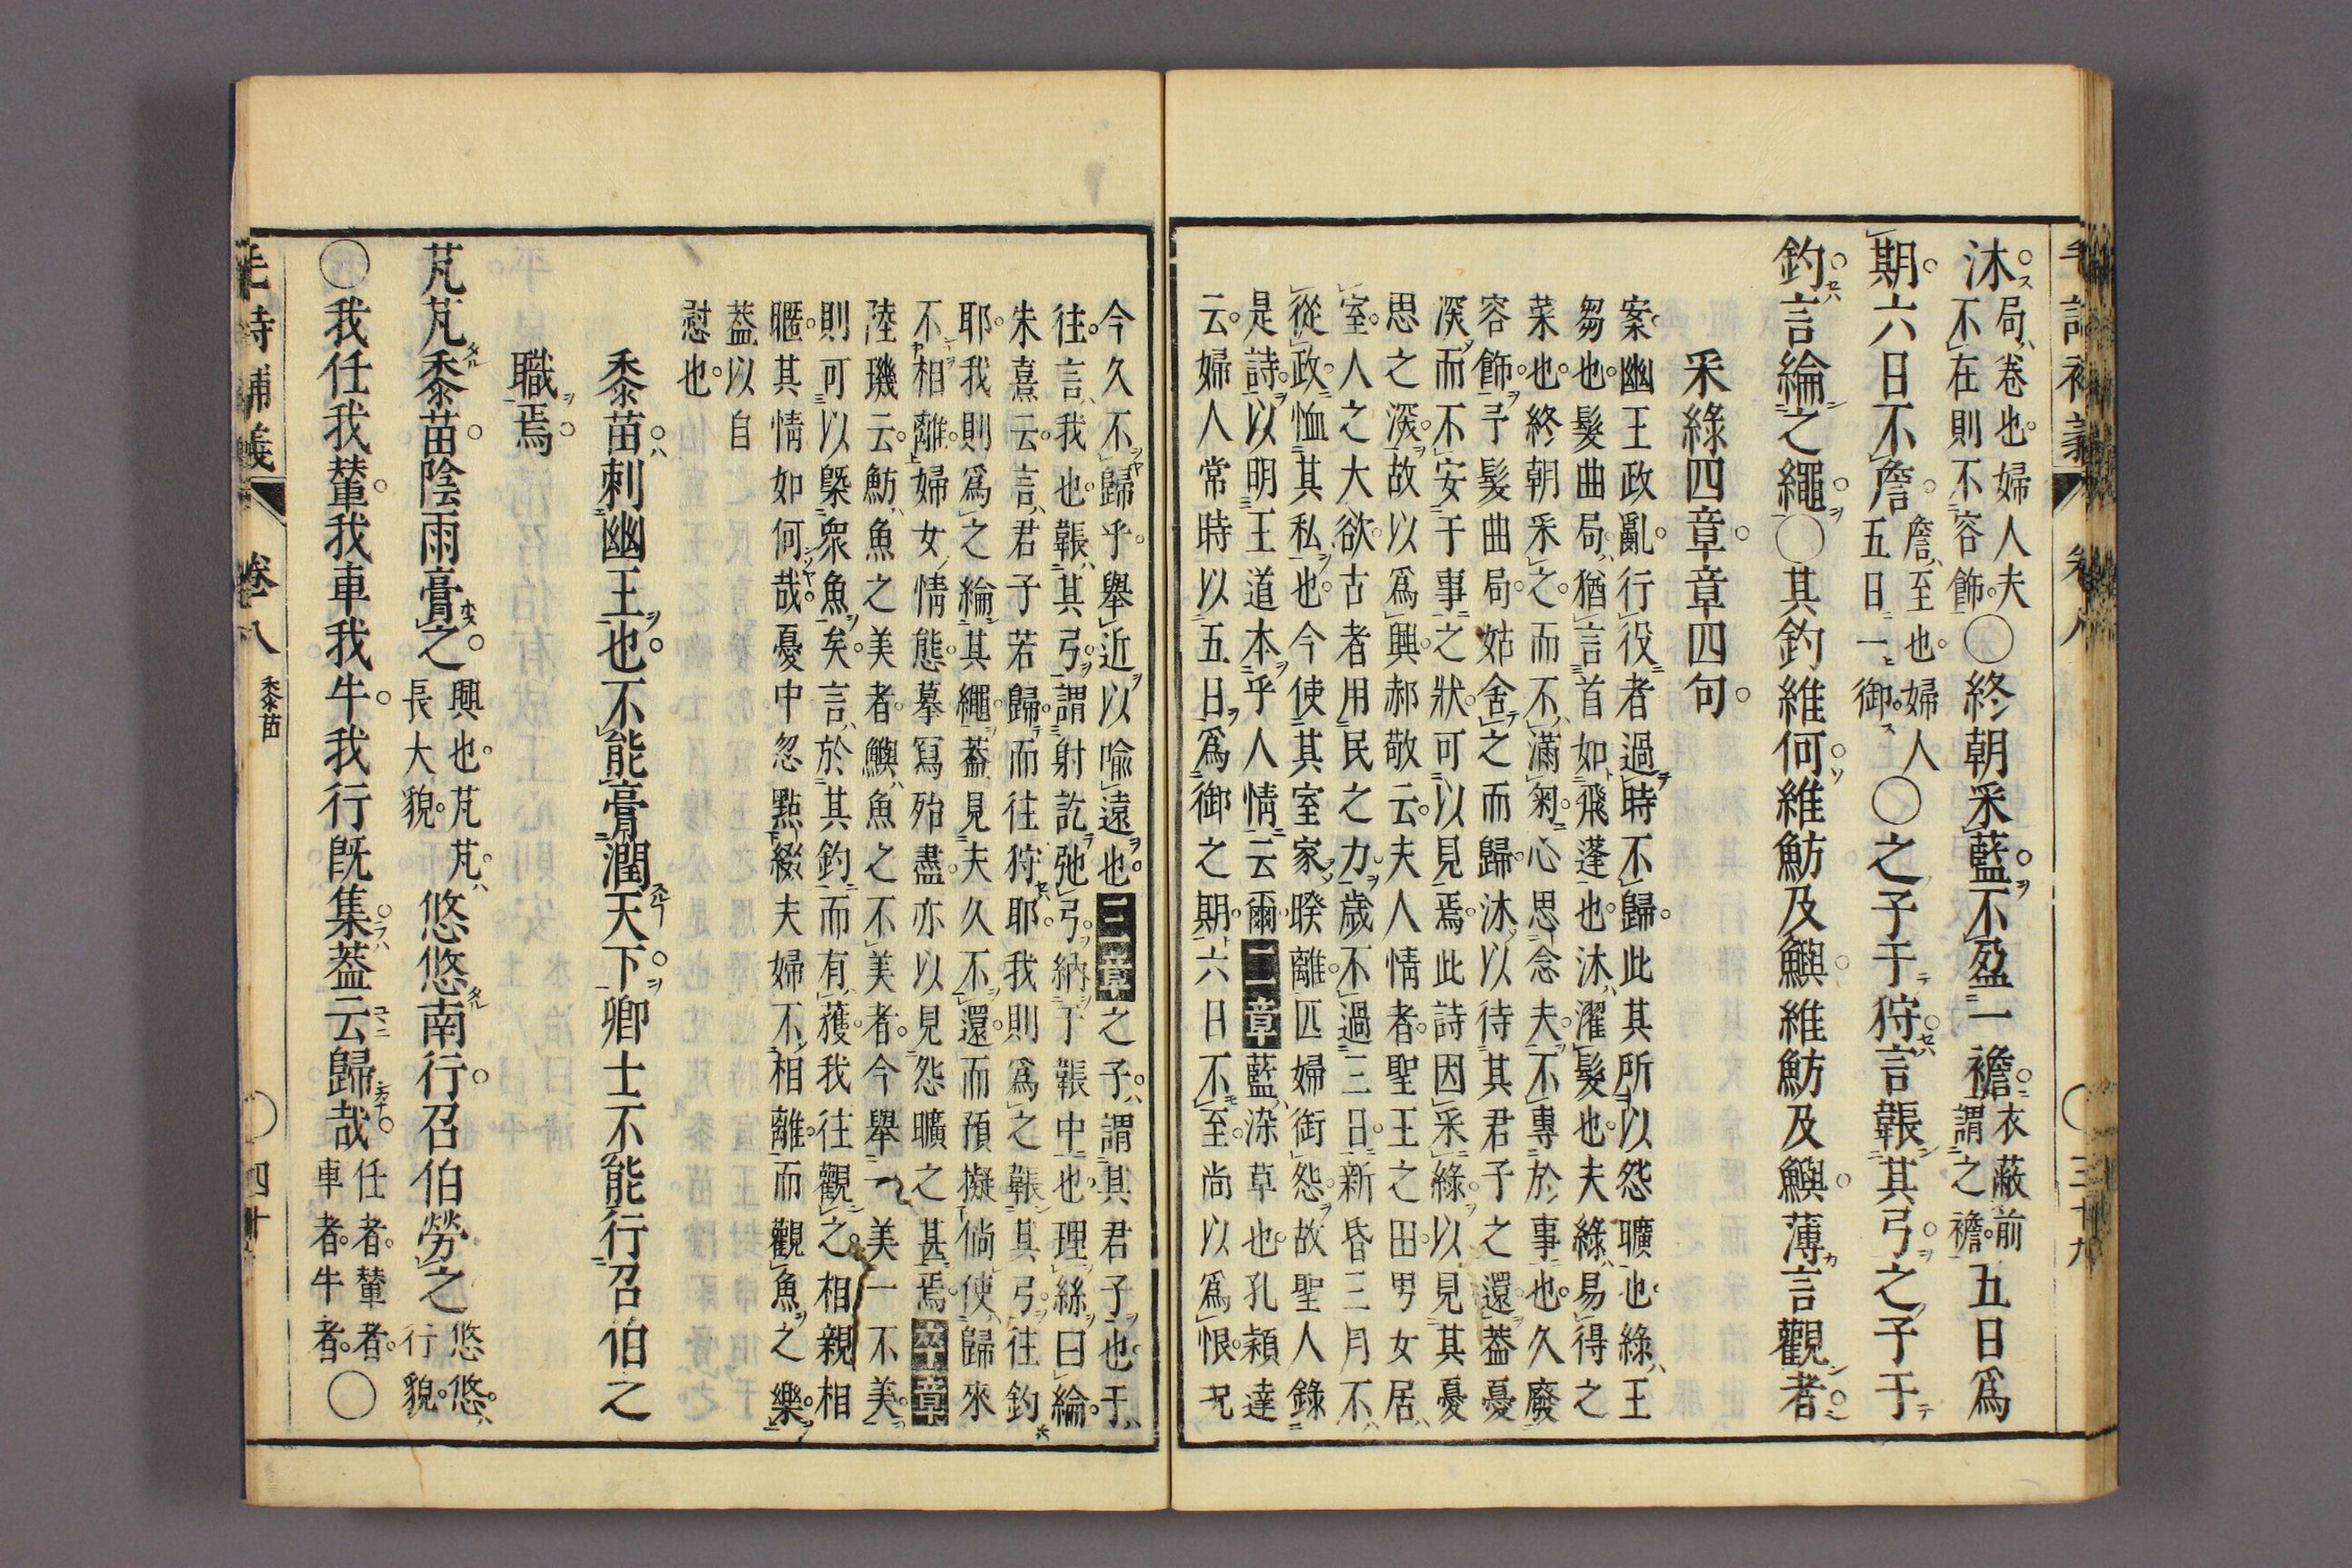 沐局、卷也。婦人夫不在則不容飾。○終朝采藍。不盈一襜。衣蔽前謂之襜。五日爲
期。六日不詹。詹、至也。婦人五日一御。○之子于狩。言韔其弓。之子于
釣。言綸之繩。○其釣維何。維魴及鱮。維魴及鱮。薄言觀者。
采綠四章。章四句。
案幽王政亂。行役者過時不歸。此其所以怨曠也。綠、王
芻也。髮曲局、猶言首如飛蓬也。沐、濯髮也。夫綠、易得之
菜也。終朝采之。而不滿菊。心思念夫。不專於事也。久廢
容飾。予髮曲局。姑舍之而歸沐。以待其君子之還。蓋憂
深而不安于事之狀。可以見焉。此詩因采綠。以見其憂
思之深。故以爲興。郝敬云。夫人情者。聖王之田。男女居
室。人之大欲。古者用民之力。歲不過三日。新昏三月不
從政。恤其私也。今使其室家暌離。匹婦銜怨。故聖人錄
是詩。以明王道本乎人情云爾。二章藍、染草也。孔穎達
云。婦人常時以五日爲御之期。六日不至。尚以爲恨。况
今久不歸乎。舉近以喻遠也。三章之子、謂其君子也。于、
往。言、我也。韔、其弓。謂射訖弛弓。納于韔中也。理絲曰綸。
朱熹云。言、君子若歸。而往狩耶。我則爲之韔其弓。往釣
耶。我則爲之綸其繩。蓋見夫久不還。而預擬倘使歸來
不相離。婦女情態。摹寫殆盡。亦以見怨曠之甚焉。卒章
陸璣云。魴、魚之美者。鱮、魚之不美者。今舉一美一不美。
則可以槩衆魚矣。言、於其釣而有獲。我往觀之。相親相
暱。其情如何哉。憂中忽點綴夫婦不相離。而觀魚之樂。
蓋以自
慰也。
黍苗。刺幽王也。不能膏潤天下。卿士不能行召伯之
職焉。
芃芃黍苗。陰雨膏之。興也。芃芃、長大貌。悠悠南行。召伯勞之悠悠、行貌。
○我任我輦。我車我牛。我行既集。蓋云歸哉。任者。輦者。車者。牛者。○
毛詩補義
卷八
黍苗
○四十